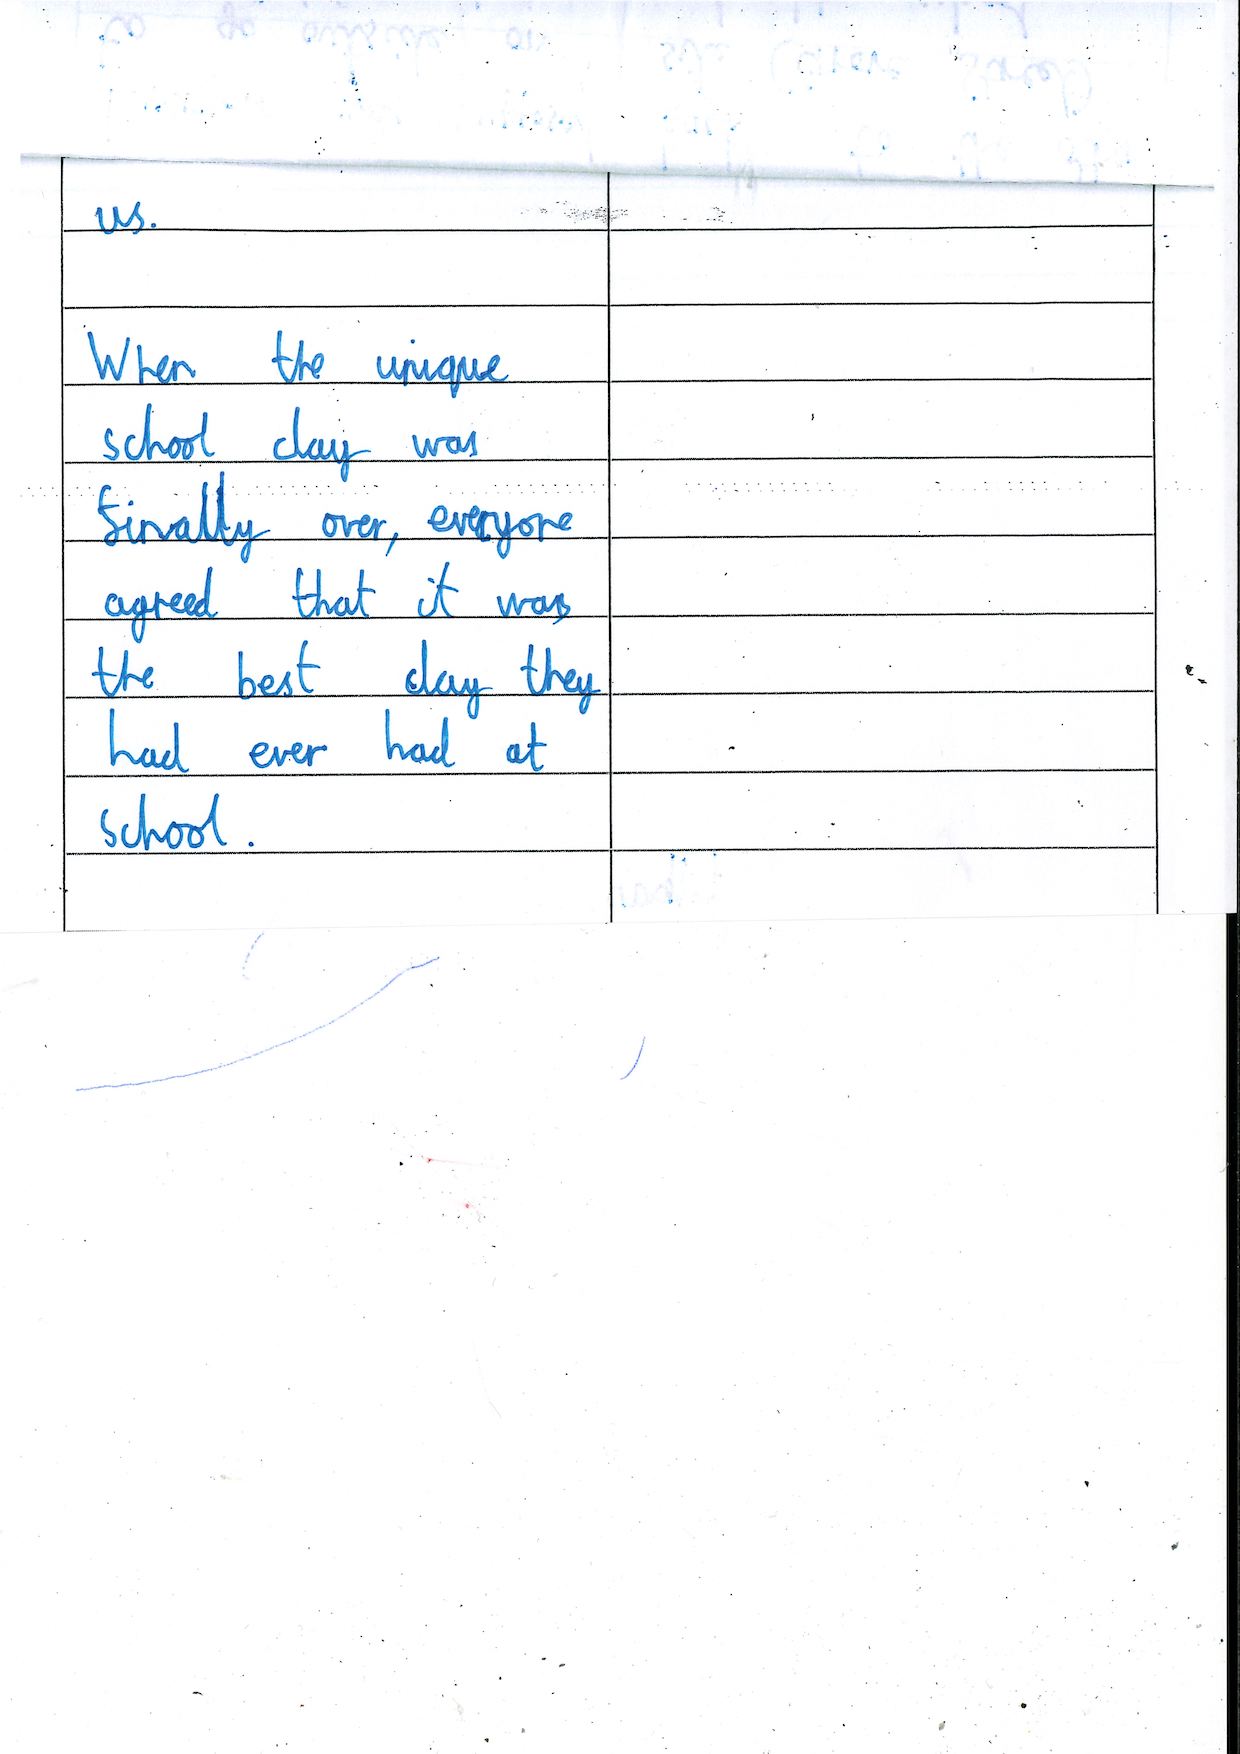 us.
When the unique
school day was
finally over, everyone
agreed that it was
the best day they
had ever had at
school.